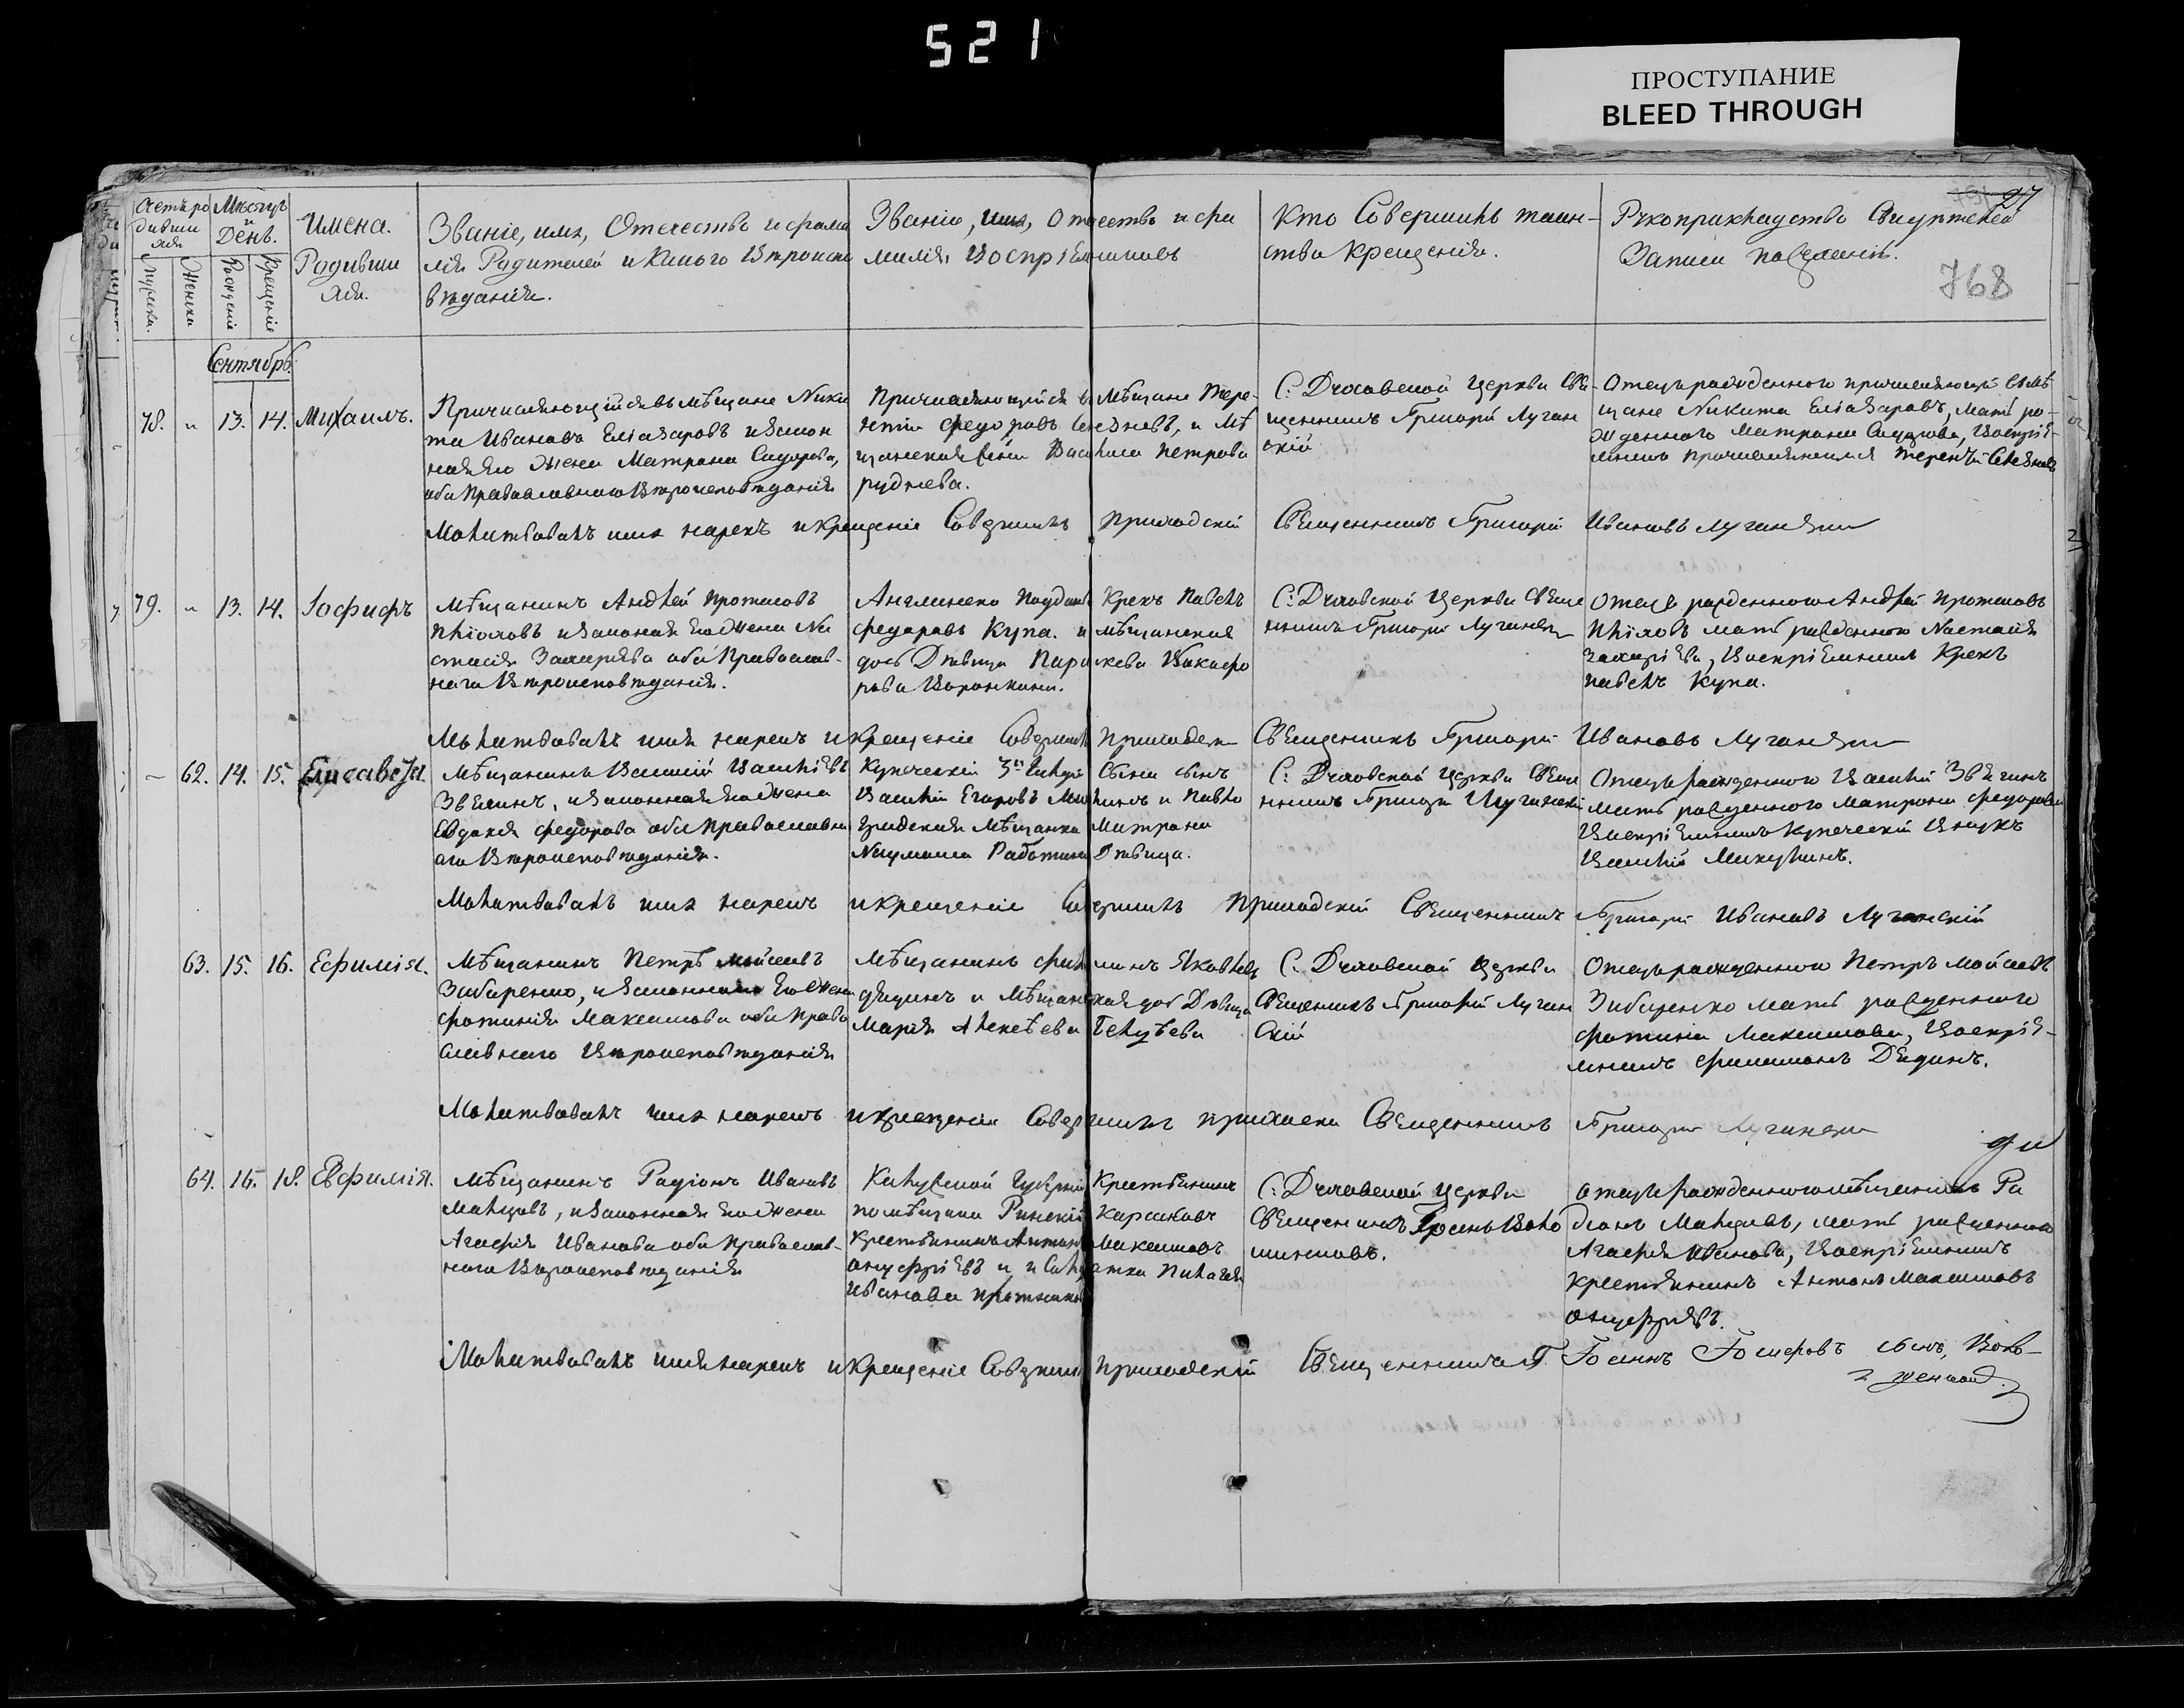 521
ПРОСТУПАНИЕ
BLEED THROUGH
97
768
Счетъ родившихся
Мужеска.
Женска
Мѣсяцъ и День.
Рожденіе
Крещеніе
Имена.
Родивши
хся.
Званіе, имя, Отечество и фами
лія Родителей и Какого Вѣроиспо
вѣданія.
Званіе, имя, Отчество и фа
милія Воспріемниковъ
Кто Совершилъ таин-
ство Крещенія.
Рукоприкладство Свидѣтелей
Записи
Сентябрь.
78. " 13. 14. Михаилъ.
Причисляющійся въ Мѣщане Ники
та Ивановъ Еліазаровъ и закон
ная его Жена Матрона Сидорова,
оба Православнаго Вѣроисповѣданія
Причисляющійся въ Мѣщане Тере-
нтій Федоровъ Селезневъ, и Мѣ
щанская Василиса Петрова
руднева.
С: Духовской Церкви Свя-
щенникъ Григорій Луган
скій
Отецъ рожденного причисляющійся въ мѣ
щане Никита Еліазаровъ, Мать ро-
жденного Матрона Сидорова, Воспріе-
мникъ причисляющійся Терентій Селезневъ
Молитвовалъ имя нарекъ и крещеніе Совершилъ приходскій Священникъ Григорій Ивановъ Луганскій
79. " 13. 14. Іосифъ
Мѣщанинъ Андрей
и законная его Жена На
стасія Захарьева оба Православ-
наго Вѣроисповѣданія.
Федоровъ Купа. и мѣщанская
дочь Дѣвица Параскева Никифо
рова Воронкина.
С: Духовской Церкви Свяще
нникъ Григорій Луганскій
Отецъ рожденного Андрей
мать рожденного Настасія
Захаріева, Воспріемникъ Грекъ
Павелъ Купа.
Молитвовалъ имя нарекъ и крещеніе Совершилъ Приходскій Священникъ Григорій Ивановъ Луганскій
— 62. 14. 15. Елисавета.
Мѣщанинъ Василій Васильевъ
и законная его Жена
Евдокія Федорова оба Православна
го Вѣроисповѣданія.
Купеческій 3й Гильдіи Сына сынъ
Василій Егоровъ Микулинъ и Павло
градская Мѣщанка Матрона
Дѣвица.
С: Духовской Церкви Свяще
нникъ Григорій Луганскій
Отецъ рожденного Василій
Мать рожденного Матрона Федорова
Воспріемникъ купеческій Внукъ
Василій Микулинъ.
Молитвовалъ имя нарекъ и крещеніе Совершилъ приходскій Священникъ Григорій Ивановъ Луганскій
63. 15. 16. Ефимія.
Мѣщанинъ Петръ Мойсеевъ
Зибаренко, и законная его Жена
Фотинія Максимова оба Право
славнаго Вѣроисповѣданія
Мѣщанинъ Яковлевъ
Дединъ и Мѣщанская дочь Дѣвица
Марія Алексѣева
С: Духовской Церкви
Священникъ Григорій Луган
скій
Отецъ рожденного Петръ Мойсеевъ
Зибаренко мать рожденного
Фотинія Максимова, Воспріе-
мникъ Филимонъ Дединъ.
Молитвовалъ имя нарекъ и крещеніе Совершилъ приходскій Священникъ Григорій Луганскій
64. 16. 18. Евфимія.
Мѣщанинъ Радіонъ Ивановъ
Мальцовъ, и законная его Жена
Агафія Иванова оба Православ-
наго Вѣроисповѣданія
Калужской Губерніи
крестьянинъ Антонъ Максимовъ
Онуфріевъ и
Иванова
С: Духовской Церкви
Священникъ
Отецъ рожденного мѣщанинъ Ра
діонъ Мальцовъ, мать рожденного
Агафія Иванова, Воспріемникъ
крестьянинъ Антонъ Максимовъ
Онуфріевъ.
Молитвовалъ имя нарекъ и Крещеніе Совершилъ приходскій Священникъ